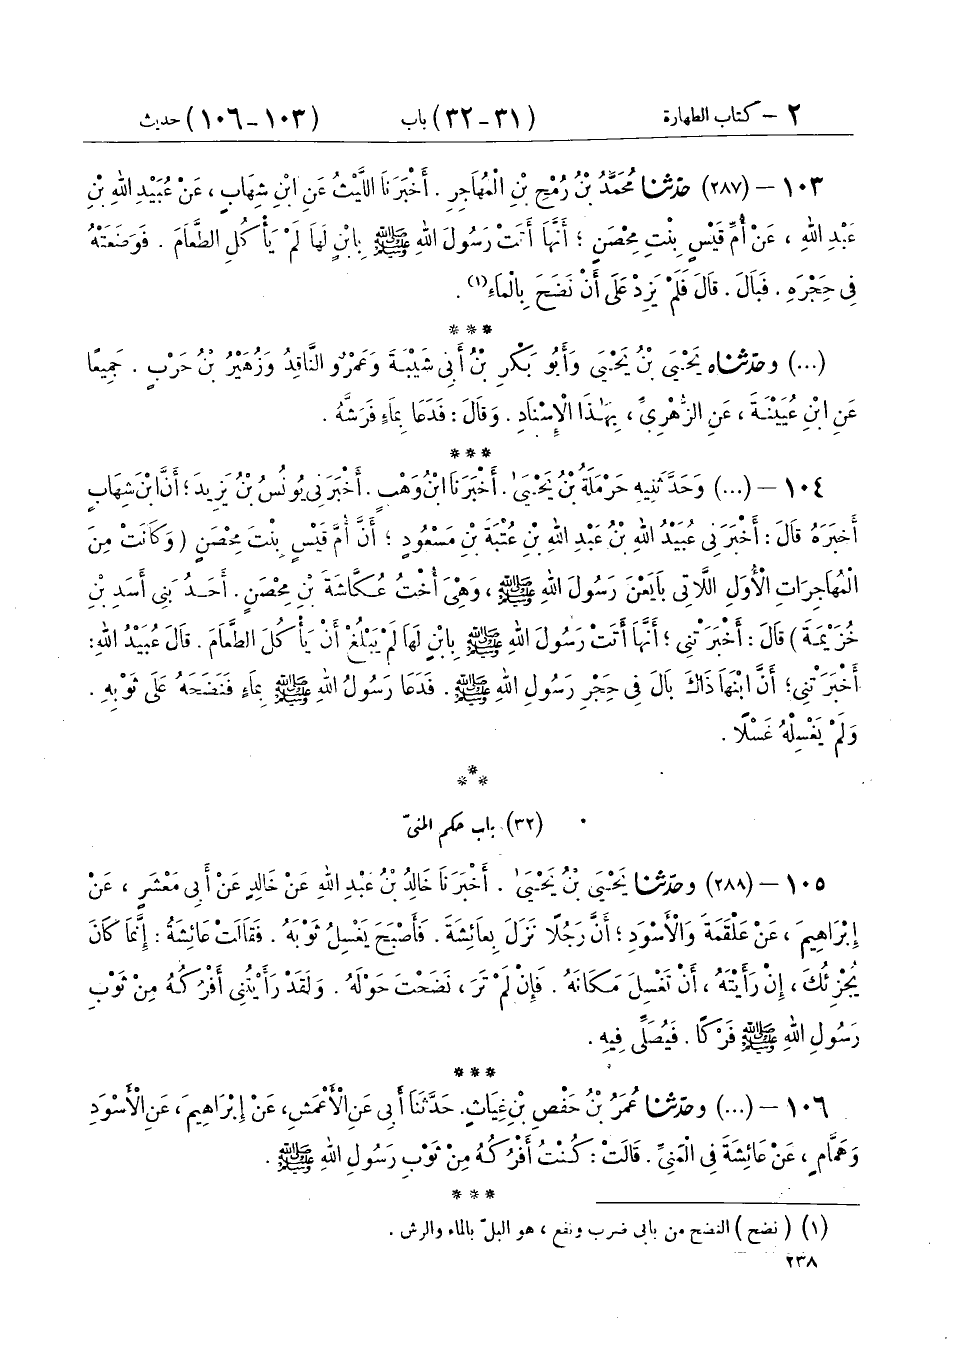 ٢ – كتاب الطهارة (٣١-٣٢) باب (١٠٣-١٠٦) حديث
١٠٣ – (٢٨٧) حدّثنا مُحَمَّدُ بْنُ رُمْحِ بْنِ الْمُهَاجِرِ . أَخْبَرَنَا اللَّيْثُ عَنِ ابْنِ شِهَابٍ ، عَنْ عُبَيْدِ اللهِ بْنِ
عَبْدِ اللهِ ، عَنْ أُمِّ قَيْسٍ بِنْتِ مِحْصَنٍ ؛ أَنَّهَا أَتَتْ رَسُولَ اللهِ ﷺ بِابْنٍ لَهَا لَمْ يَأْكُلِ الطَّعَامَ . فَوَضَعَتْهُ
فِي حِجْرِهِ . فَبَالَ . قَالَ فَلَمْ يَزِدْ عَلَى أَنْ نَضَحَ بِالْمَاءِ(١) .
***
(...) وحدّثناه يَحْيَى بْنُ يَحْيَى وَأَبُو بَكْرِ بْنُ أَبِي شَيْبَةَ وَعَمْرٌو النَّاقِدُ وَزُهَيْرُ بْنُ حَرْبٍ . جَمِيعًا
عَنِ ابْنِ عُيَيْنَةَ ، عَنِ الزُّهْرِيِّ ، بِهٰذَا الْإِسْنَادِ . وَقَالَ : فَدَعَا بِمَاءٍ فَرَشَّهُ .
***
١٠٤ – (...) وَحَدَّثَنِيهِ حَرْمَلَةُ بْنُ يَحْيَىٰ . أَخْبَرَنَا ابْنُ وَهْبٍ . أَخْبَرَنِي يُونُسُ بْنُ يَزِيدَ ؛ أَنَّ ابْنَ شِهَابٍ
أَخْبَرَهُ قَالَ : أَخْبَرَنِي عُبَيْدُ اللهِ بْنُ عَبْدِ اللهِ بْنِ عُتْبَةَ بْنِ مَسْعُودٍ ؛ أَنَّ أُمَّ قَيْسٍ بِنْتَ مِحْصَنٍ ( وَكَانَتْ مِنَ
الْمُهَاجِرَاتِ الْأُوَلِ اللَّاتِي بَايَعْنَ رَسُولَ اللهِ ﷺ ، وَهِيَ أُخْتُ عُكَّاشَةَ بْنِ مِحْصَنٍ . أَحَدُ بَنِي أَسَدِ بْنِ
خُزَيْمَةَ ) قَالَ : أَخْبَرَتْنِي ؛ أَنَّهَا أَتَتْ رَسُولَ اللهِ ﷺ بِابْنٍ لَهَا لَمْ يَبْلُغْ أَنْ يَأْكُلَ الطَّعَامَ . قَالَ عُبَيْدُ اللهِ :
أَخْبَرَتْنِي ؛ أَنَّ ابْنَهَا ذَاكَ بَالَ فِي حِجْرِ رَسُولِ اللهِ ﷺ . فَدَعَا رَسُولُ اللهِ ﷺ بِمَاءٍ فَنَضَحَهُ عَلَى ثَوْبِهِ .
وَلَمْ يَغْسِلْهُ غَسْلًا .
***
(٣٢) باب حكم المنيّ
١٠٥ – (٢٨٨) وحدّثنا يَحْيَى بْنُ يَحْيَىٰ . أَخْبَرَنَا خَالِدُ بْنُ عَبْدِ اللهِ عَنْ خَالِدٍ عَنْ أَبِي مَعْشَرٍ ، عَنْ
إِبْرَاهِيمَ ، عَنْ عَلْقَمَةَ وَالْأَسْوَدِ ؛ أَنَّ رَجُلًا نَزَلَ بِعَائِشَةَ . فَأَصْبَحَ يَغْسِلُ ثَوْبَهُ . فَقَالَتْ عَائِشَةُ : إِنَّمَا كَانَ
يُجْزِئُكَ ، إِنْ رَأَيْتَهُ ، أَنْ تَغْسِلَ مَكَانَهُ . فَإِنْ لَمْ تَرَ ، نَضَحْتَ حَوْلَهُ . وَلَقَدْ رَأَيْتُنِي أَفْرُكُهُ مِنْ ثَوْبِ
رَسُولِ اللهِ ﷺ فَرْكًا . فَيُصَلِّي فِيهِ .
***
١٠٦ – (...) وحدّثنا عُمَرُ بْنُ حَفْصِ بْنِ غِيَاثٍ . حَدَّثَنَا أَبِي عَنِ الْأَعْمَشِ ، عَنْ إِبْرَاهِيمَ ، عَنِ الْأَسْوَدِ
وَهَمَّامٍ ، عَنْ عَائِشَةَ فِي الْمَنِيِّ . قَالَتْ : كُنْتُ أَفْرُكُهُ مِنْ ثَوْبِ رَسُولِ اللهِ ﷺ .
***
(١) ( نضح ) النضح من بابى ضرب ونفع ، هو البلّ بالماء والرش .
٢٣٨